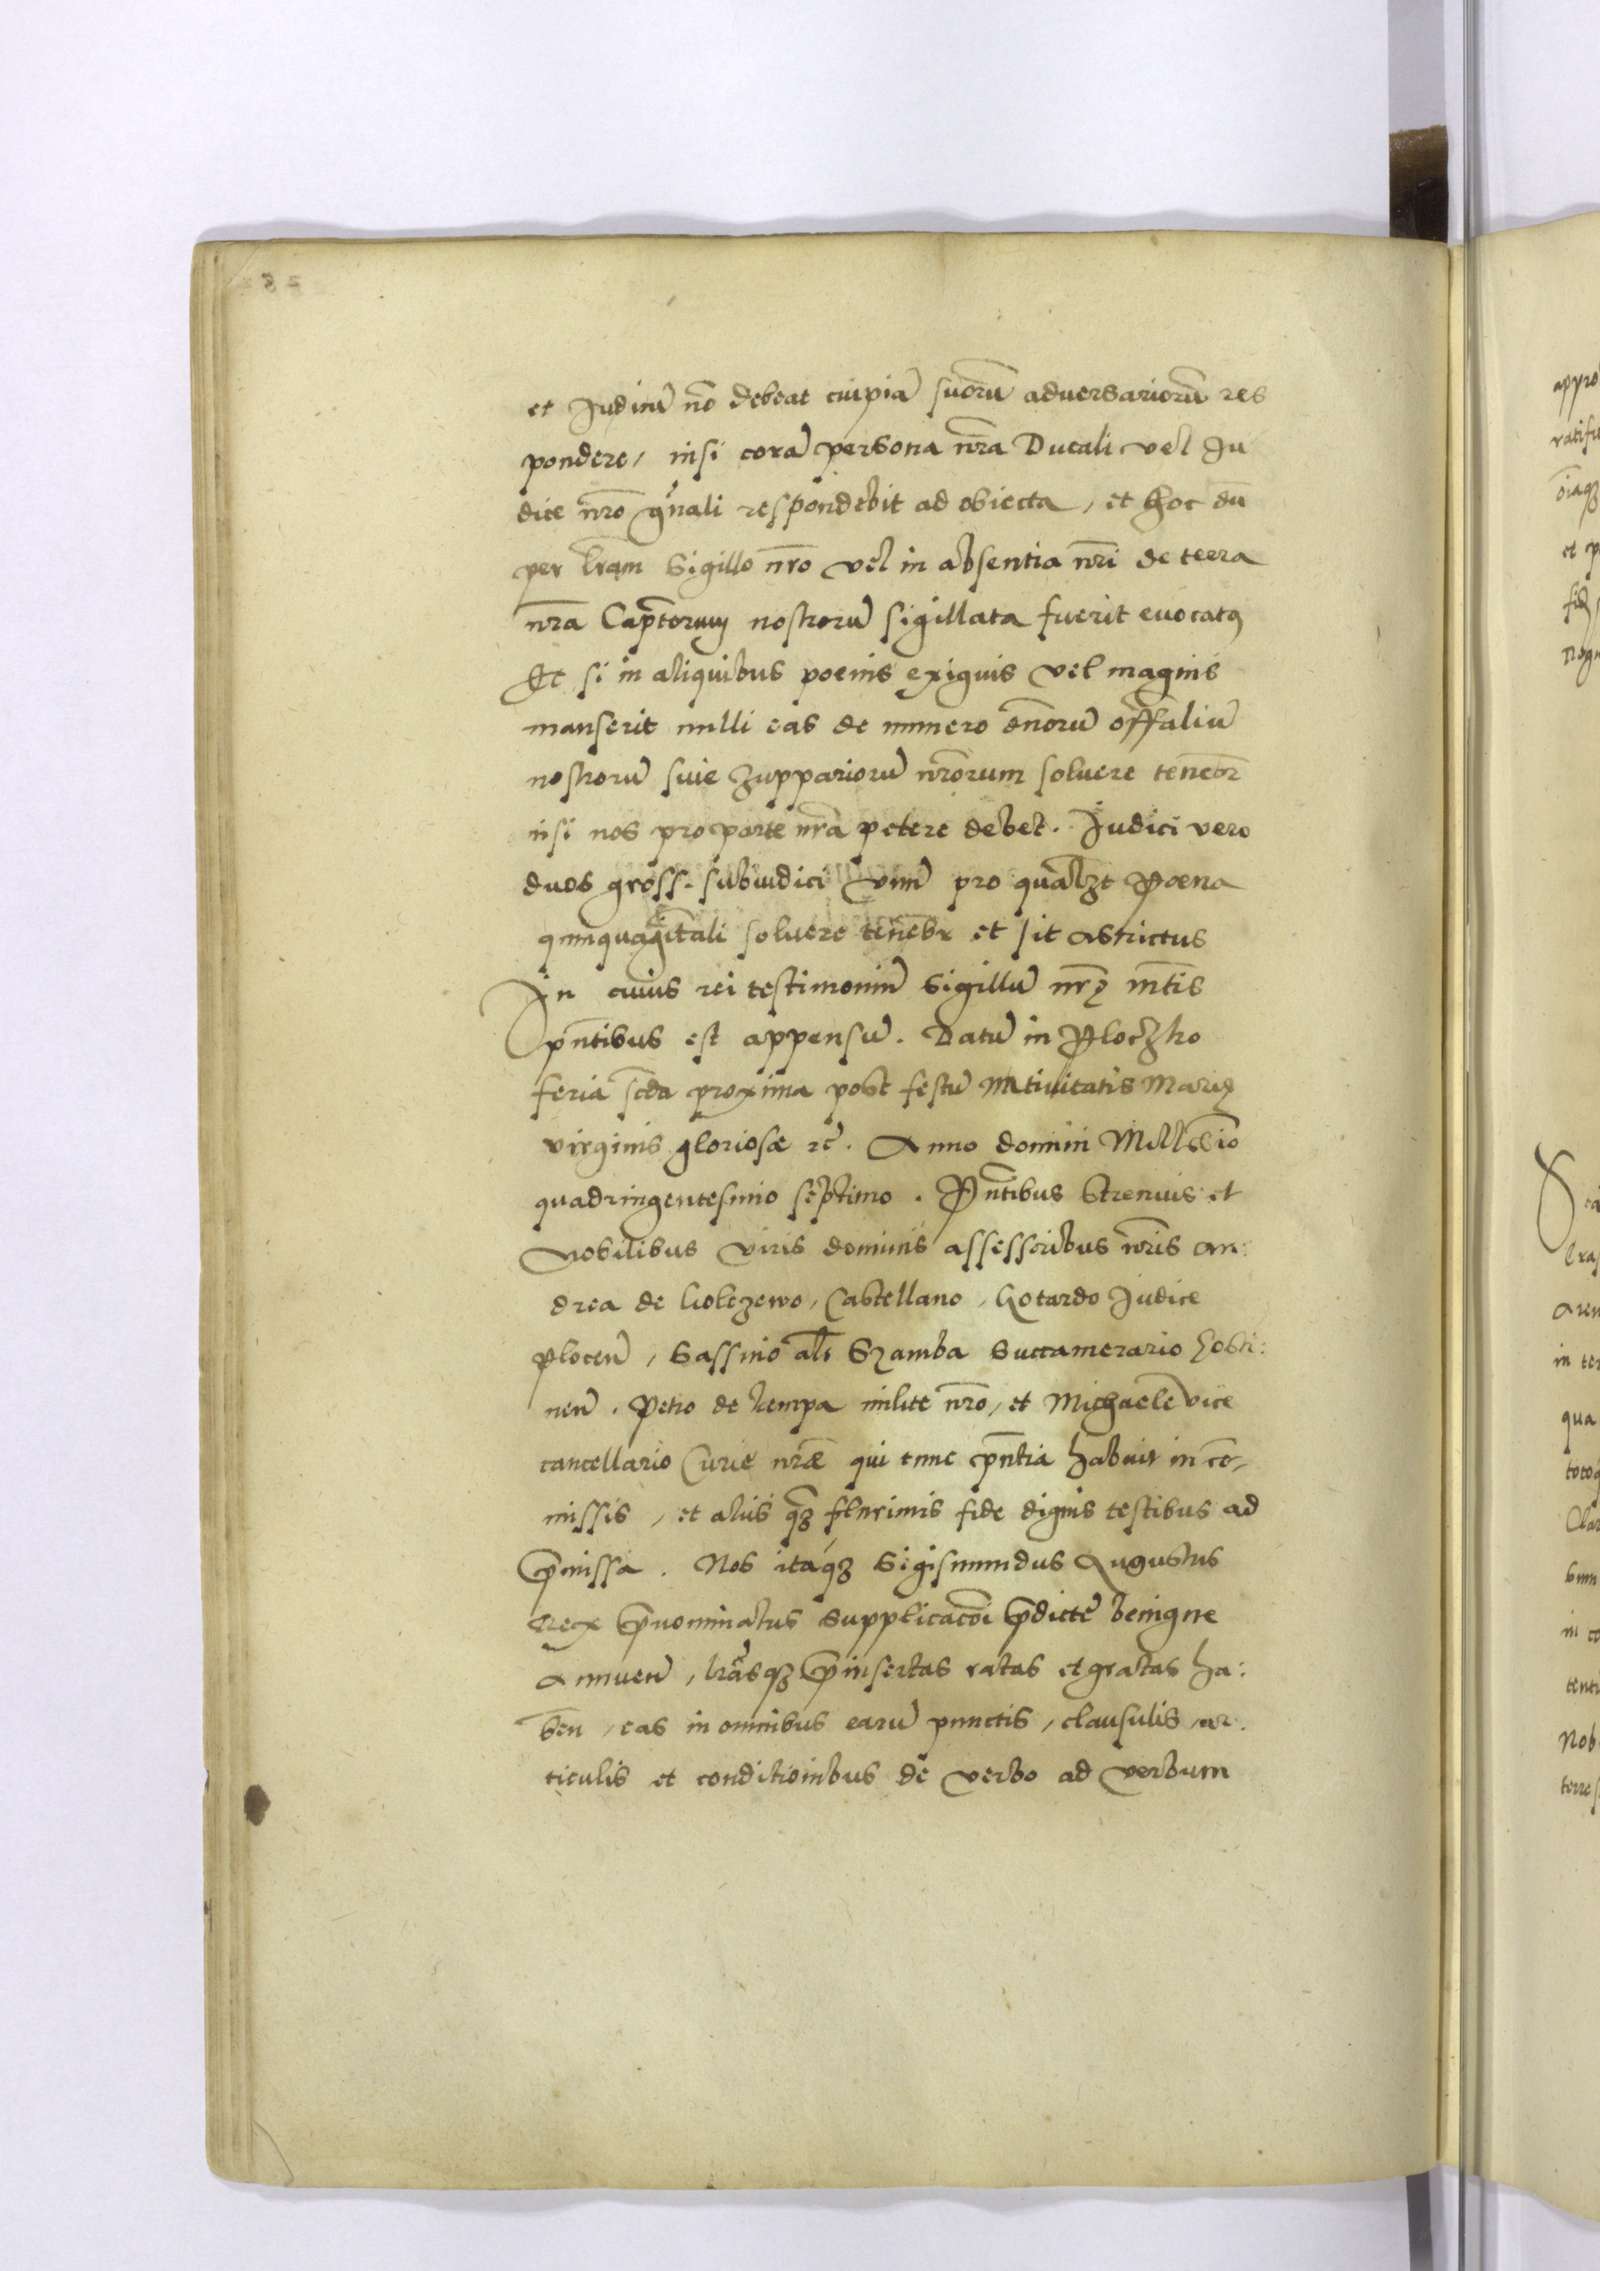 et Judiciũ nõ debeat cuipiã suorũ adversariorũ res
pondere, nisi corã persona nr̃a Ducali vel Ju
dice nrõ gñali respondebit ad obiecta, et hoc dũ
per lr̃am Sigillo nr̃o vel in absentia nrĩ de terra
nr̃a Capt̃orum nostrorũ sigillata fuerit evocatus
Et si in aliquibus poenis exiguis vel magnis
manserit nulli eas de numero dñorũ offaliũ
nostrorũ sive Zuppariorũ nrõrum solvere tenebr̃
nisi nos pro parte nrã petere debet. Judici vero
duos gross. subiudici vnũ pro qualꝫt Poena
quinquagintali solvere tenebr̃ et sit astrictus
In cuius rei testimoniũ Sigillũ nrũ
pñtibus est appensũ. Datũ in Ploczko
feria scda proxima post festũ Nativitatis Marię
virginis gloriosæ rc̃. Anno domini Millesĩo
quadringentesimo septimo. Pñtibus Strenuis et
Nobilibus viris dominis assessoribus nrĩs An:
drea de Golczewo, Castellano, Gotardo Judice
Plocen̄, Sassino al̃s Szamba Succamerario
nen̄. Petro de Kempa milite nrõ, et Michaele vice
cancellario Curie nrӕ qui tunc pñtia habuit in cõ,
missis, et aliis qꝫ plurimis fide dignis testibus ad
p̃missa. Nos itaqꝫ Sigismundus Augustus
Rex p̃nominatus supplicacõi p̃dicte benigne
Annuen̄, lrãsqꝫ p̃insertas ratas et gratas ha:
beñ, eas in omnibus earũ punctis, clausulis, ar:
ticulis et conditionibus de verbo ad verbum
appro
ratifi
oĩaqꝫ
et p
lras
in ter
qua
totoq
Clar
in co
tenti
Nob
terre